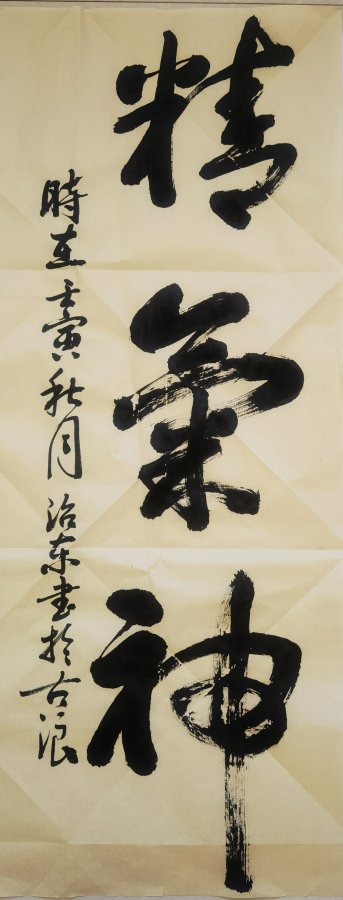 精氣神
時在壬寅秋月治东书於古浪